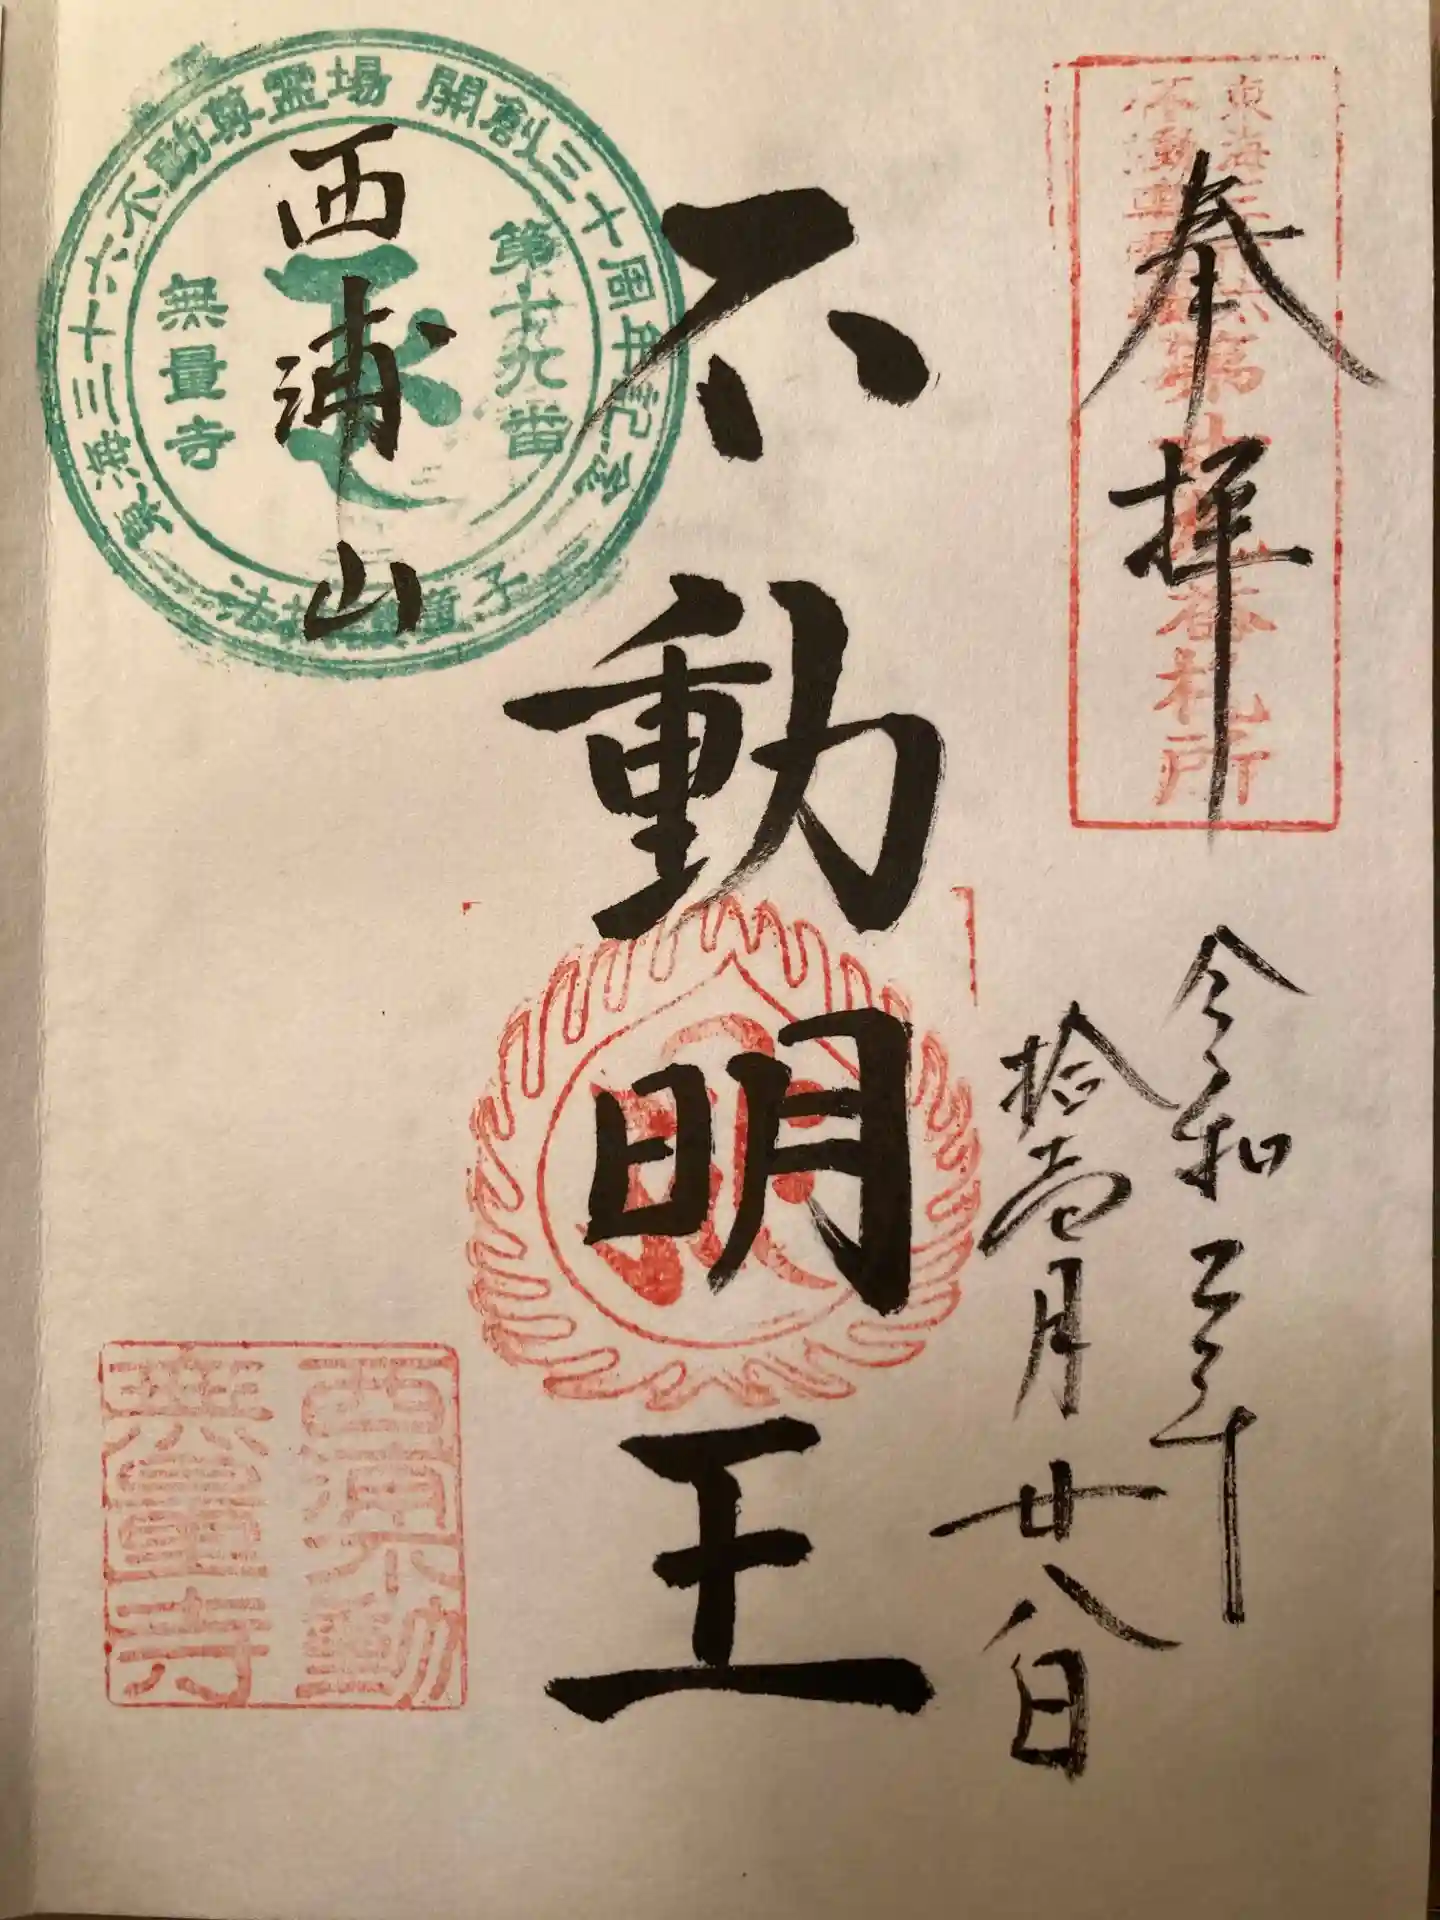 奉拝
東海三十六
不動尊霊場
第十九番札所
令和三年
拾壱月廿八日
不動明王
西浦山
東海三十六不動尊霊場 開創三十周年記念
第十九番
無量寺
西浦不動
無量寺